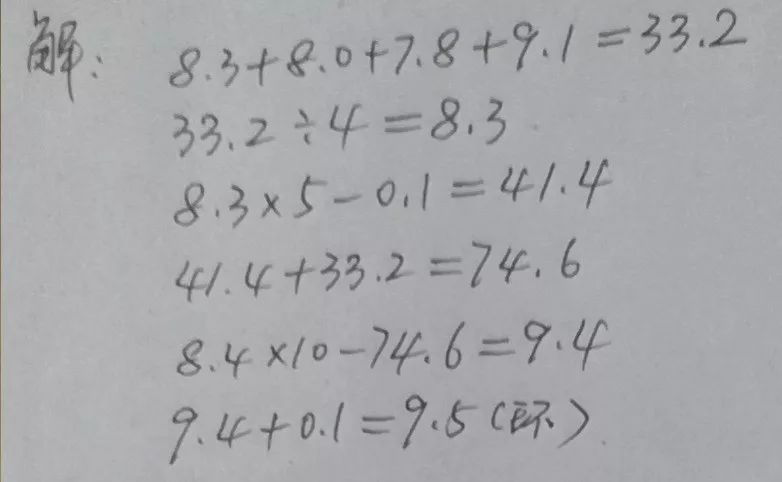 解: 8.3+8.0+7.8+9.1=33.2
33.2÷4=8.3
8.3×5-0.1=41.4
41.4+33.2=74.6
8.4×10-74.6=9.4
9.4+0.1=9.5(环)